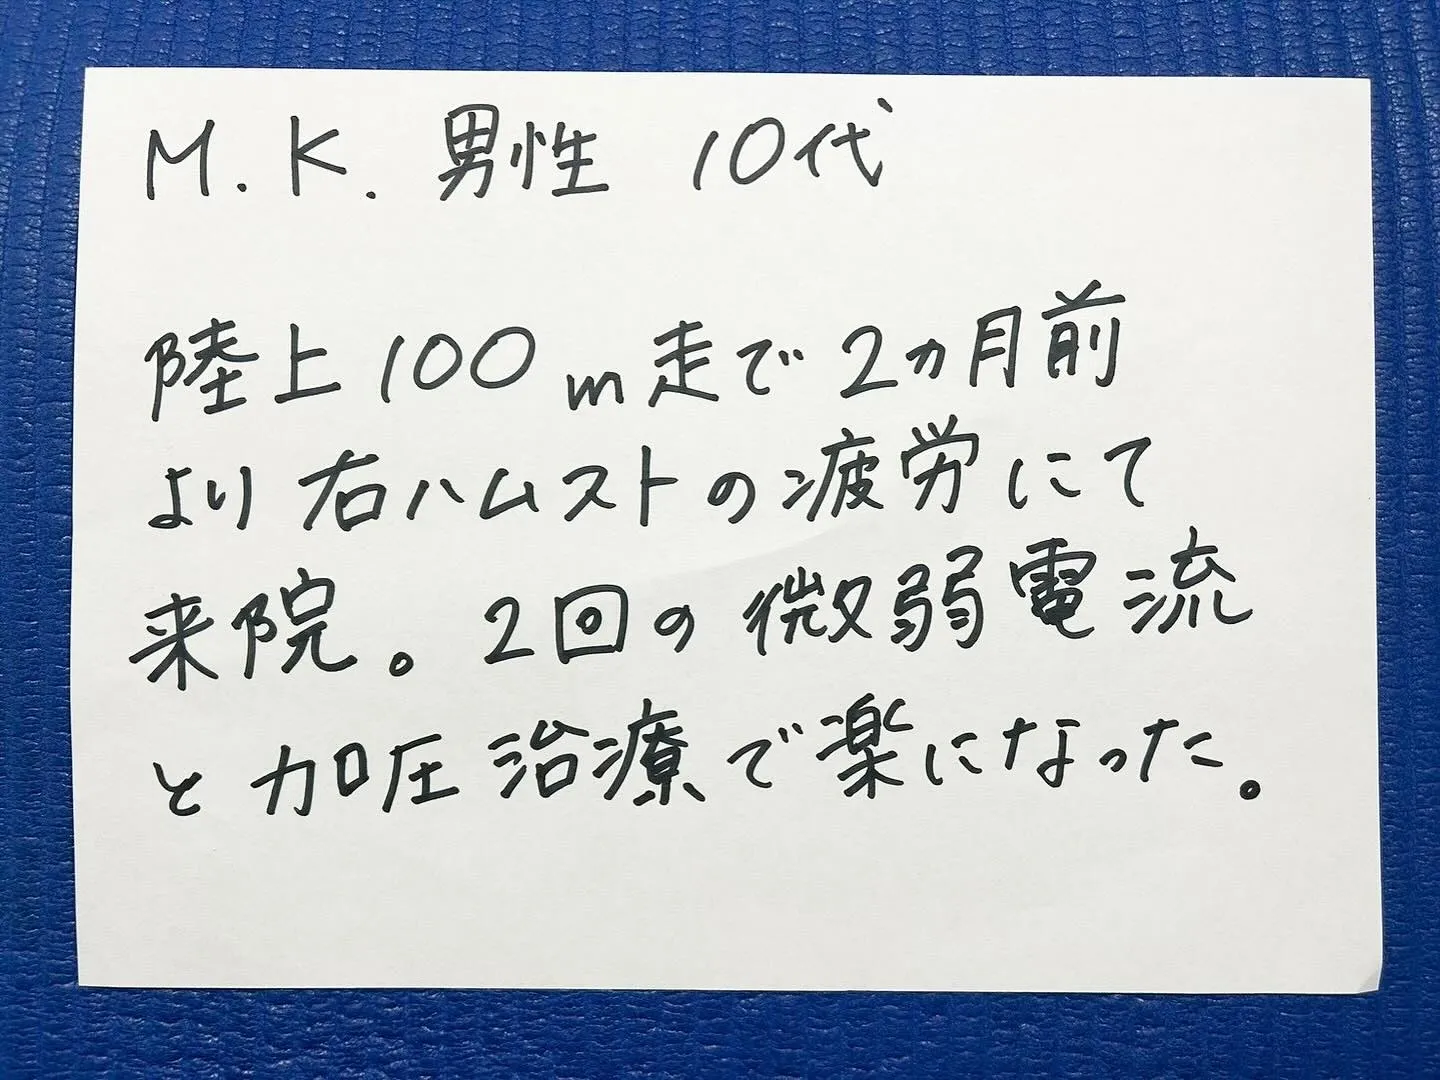 M.K. 男性 10代
陸上100m走で2ヵ月前
より右ハムストの疲労にて
来院。2回の微弱電流
と加圧治療で楽になった。